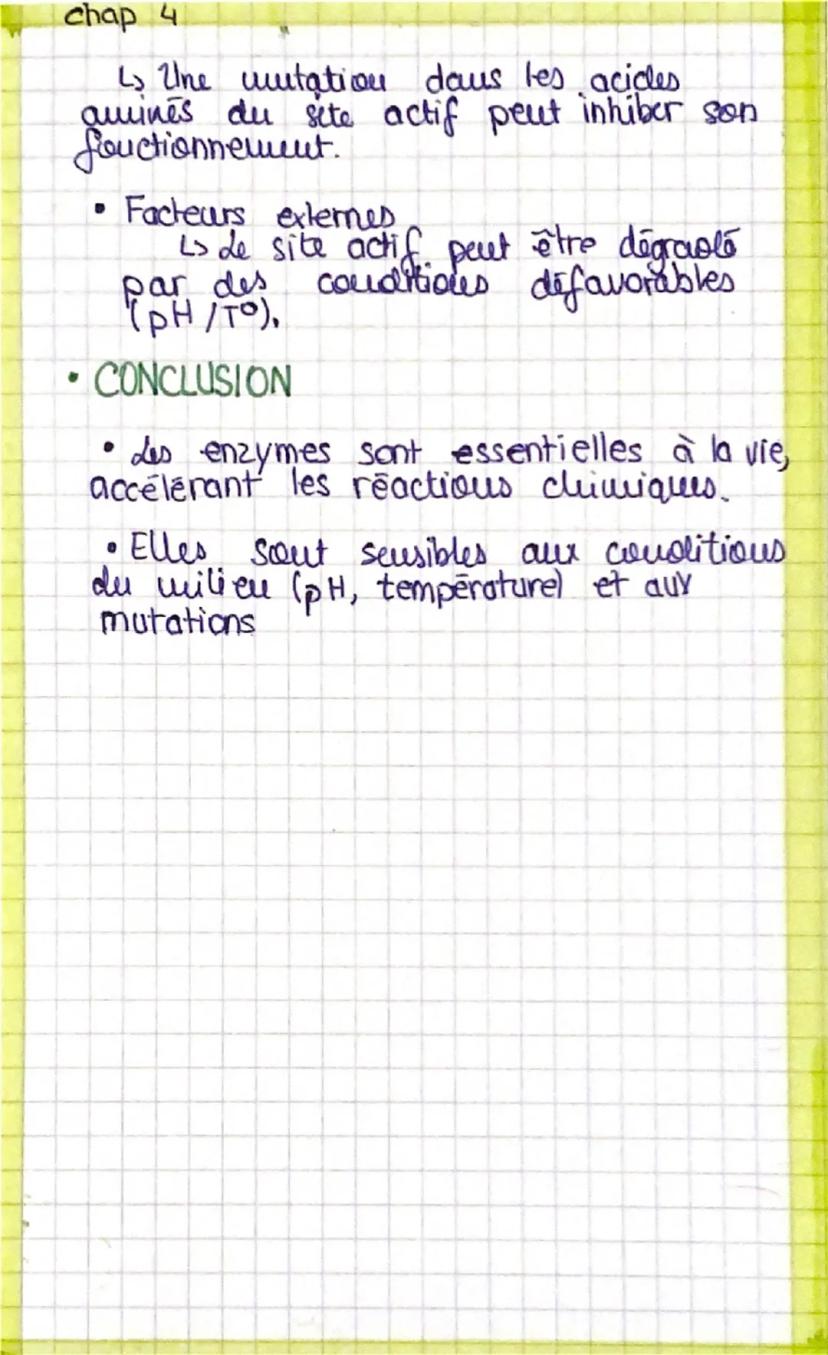 chap 4
↳ Une mutation dans les acides
aminés du site actif peut inhiber son
fonctionnement.
• Facteurs externes
↳ Le site actif peut être dégradé
par des conditions défavorables
(pH / T°).
• CONCLUSION
• Les enzymes sont essentielles à la vie,
accélérant les réactions chimiques.
• Elles sont sensibles aux conditions
du milieu (pH, température) et aux
mutations